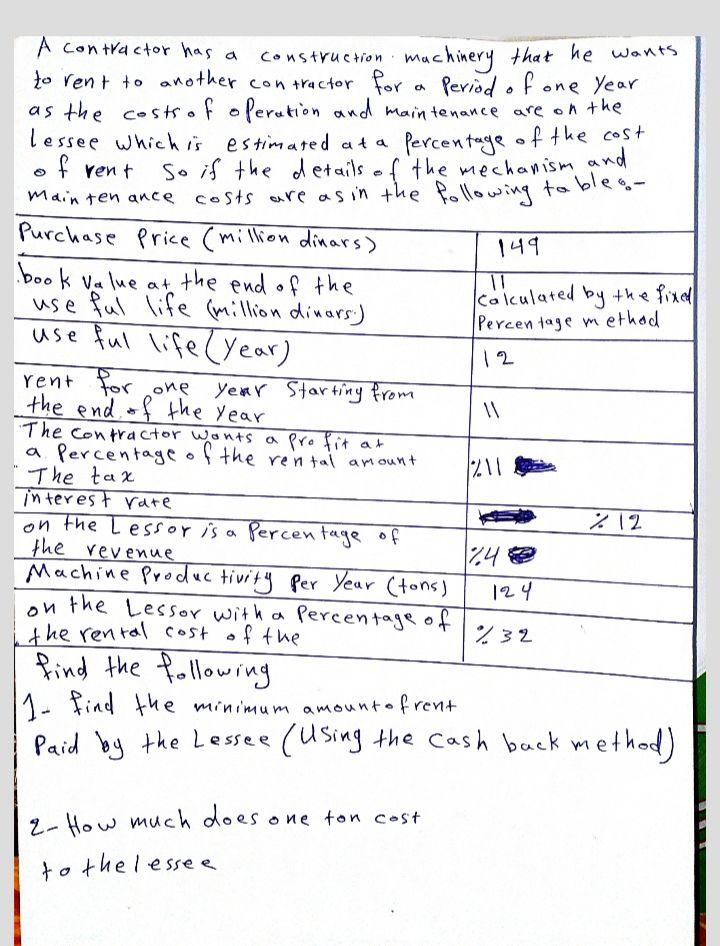 A contractor has a construction machinery that he wants
to rent to another contractor for a Period of one Year
as the costs of operation and maintenance are on the
Lessee which is estimated at a Percentage of the cost
of rent So if the details of the mechanism and
maintenance costs are as in the following tables:-
Purchase Price (million dinars)
149
book value at the end of the
useful life (million dinars)
11
calculated by the fixed
Percentage method
useful life (Year)
12
rent for one year Starting from
the end of the Year
11
The contractor wants a profit at
a Percentage of the rental amount
%11
The tax
interest rate
%12
on the Lessor is a Percentage of
the revenue
%4
Machine Productivity Per Year (tons)
124
on the Lessor with a Percentage of
the rental cost of the
%32
find the following
1- find the minimum amount of rent
Paid by the Lessee (Using the cash back method)
2- How much does one ton cost
to the lessee